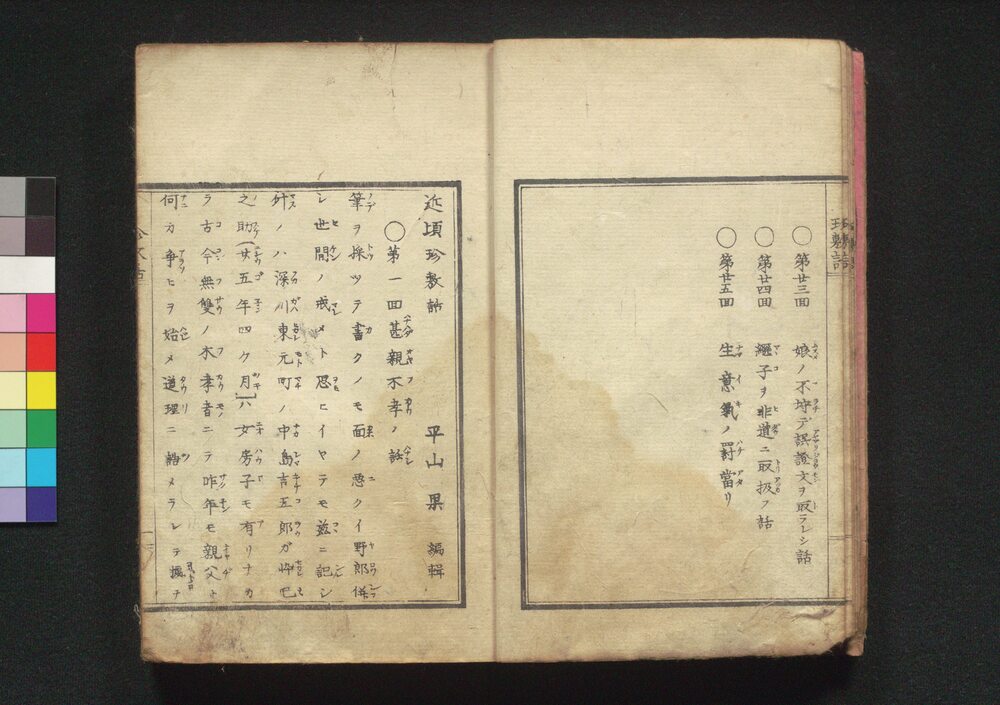 ○第廿三回 娘ノ不埒デ誤證文ヲ取ラレシ話
○第廿四回 繼子ヲ非道ニ取扱フ話
○第廿五回 生意氣ノ罰當リ
近頃珍教訴 平山果 編輯
○第一回甚親不孝ノ訴
筆ヲ採ツテ書クノモ面ノ惡クイ野郎併
シ世間ノ戒メト思ヒイヤテモ茲ニ記シ
舛ノハ深川東元町ノ中島吉五郎ガ忰巳
之助(廿五年四ケ月)ハ女房子モ有リナカ
ラ古今無雙ノ不孝者ニテ昨年モ親父ト
何カ爭ヒヲ始メ道理ニ詰メラレテ據ナ